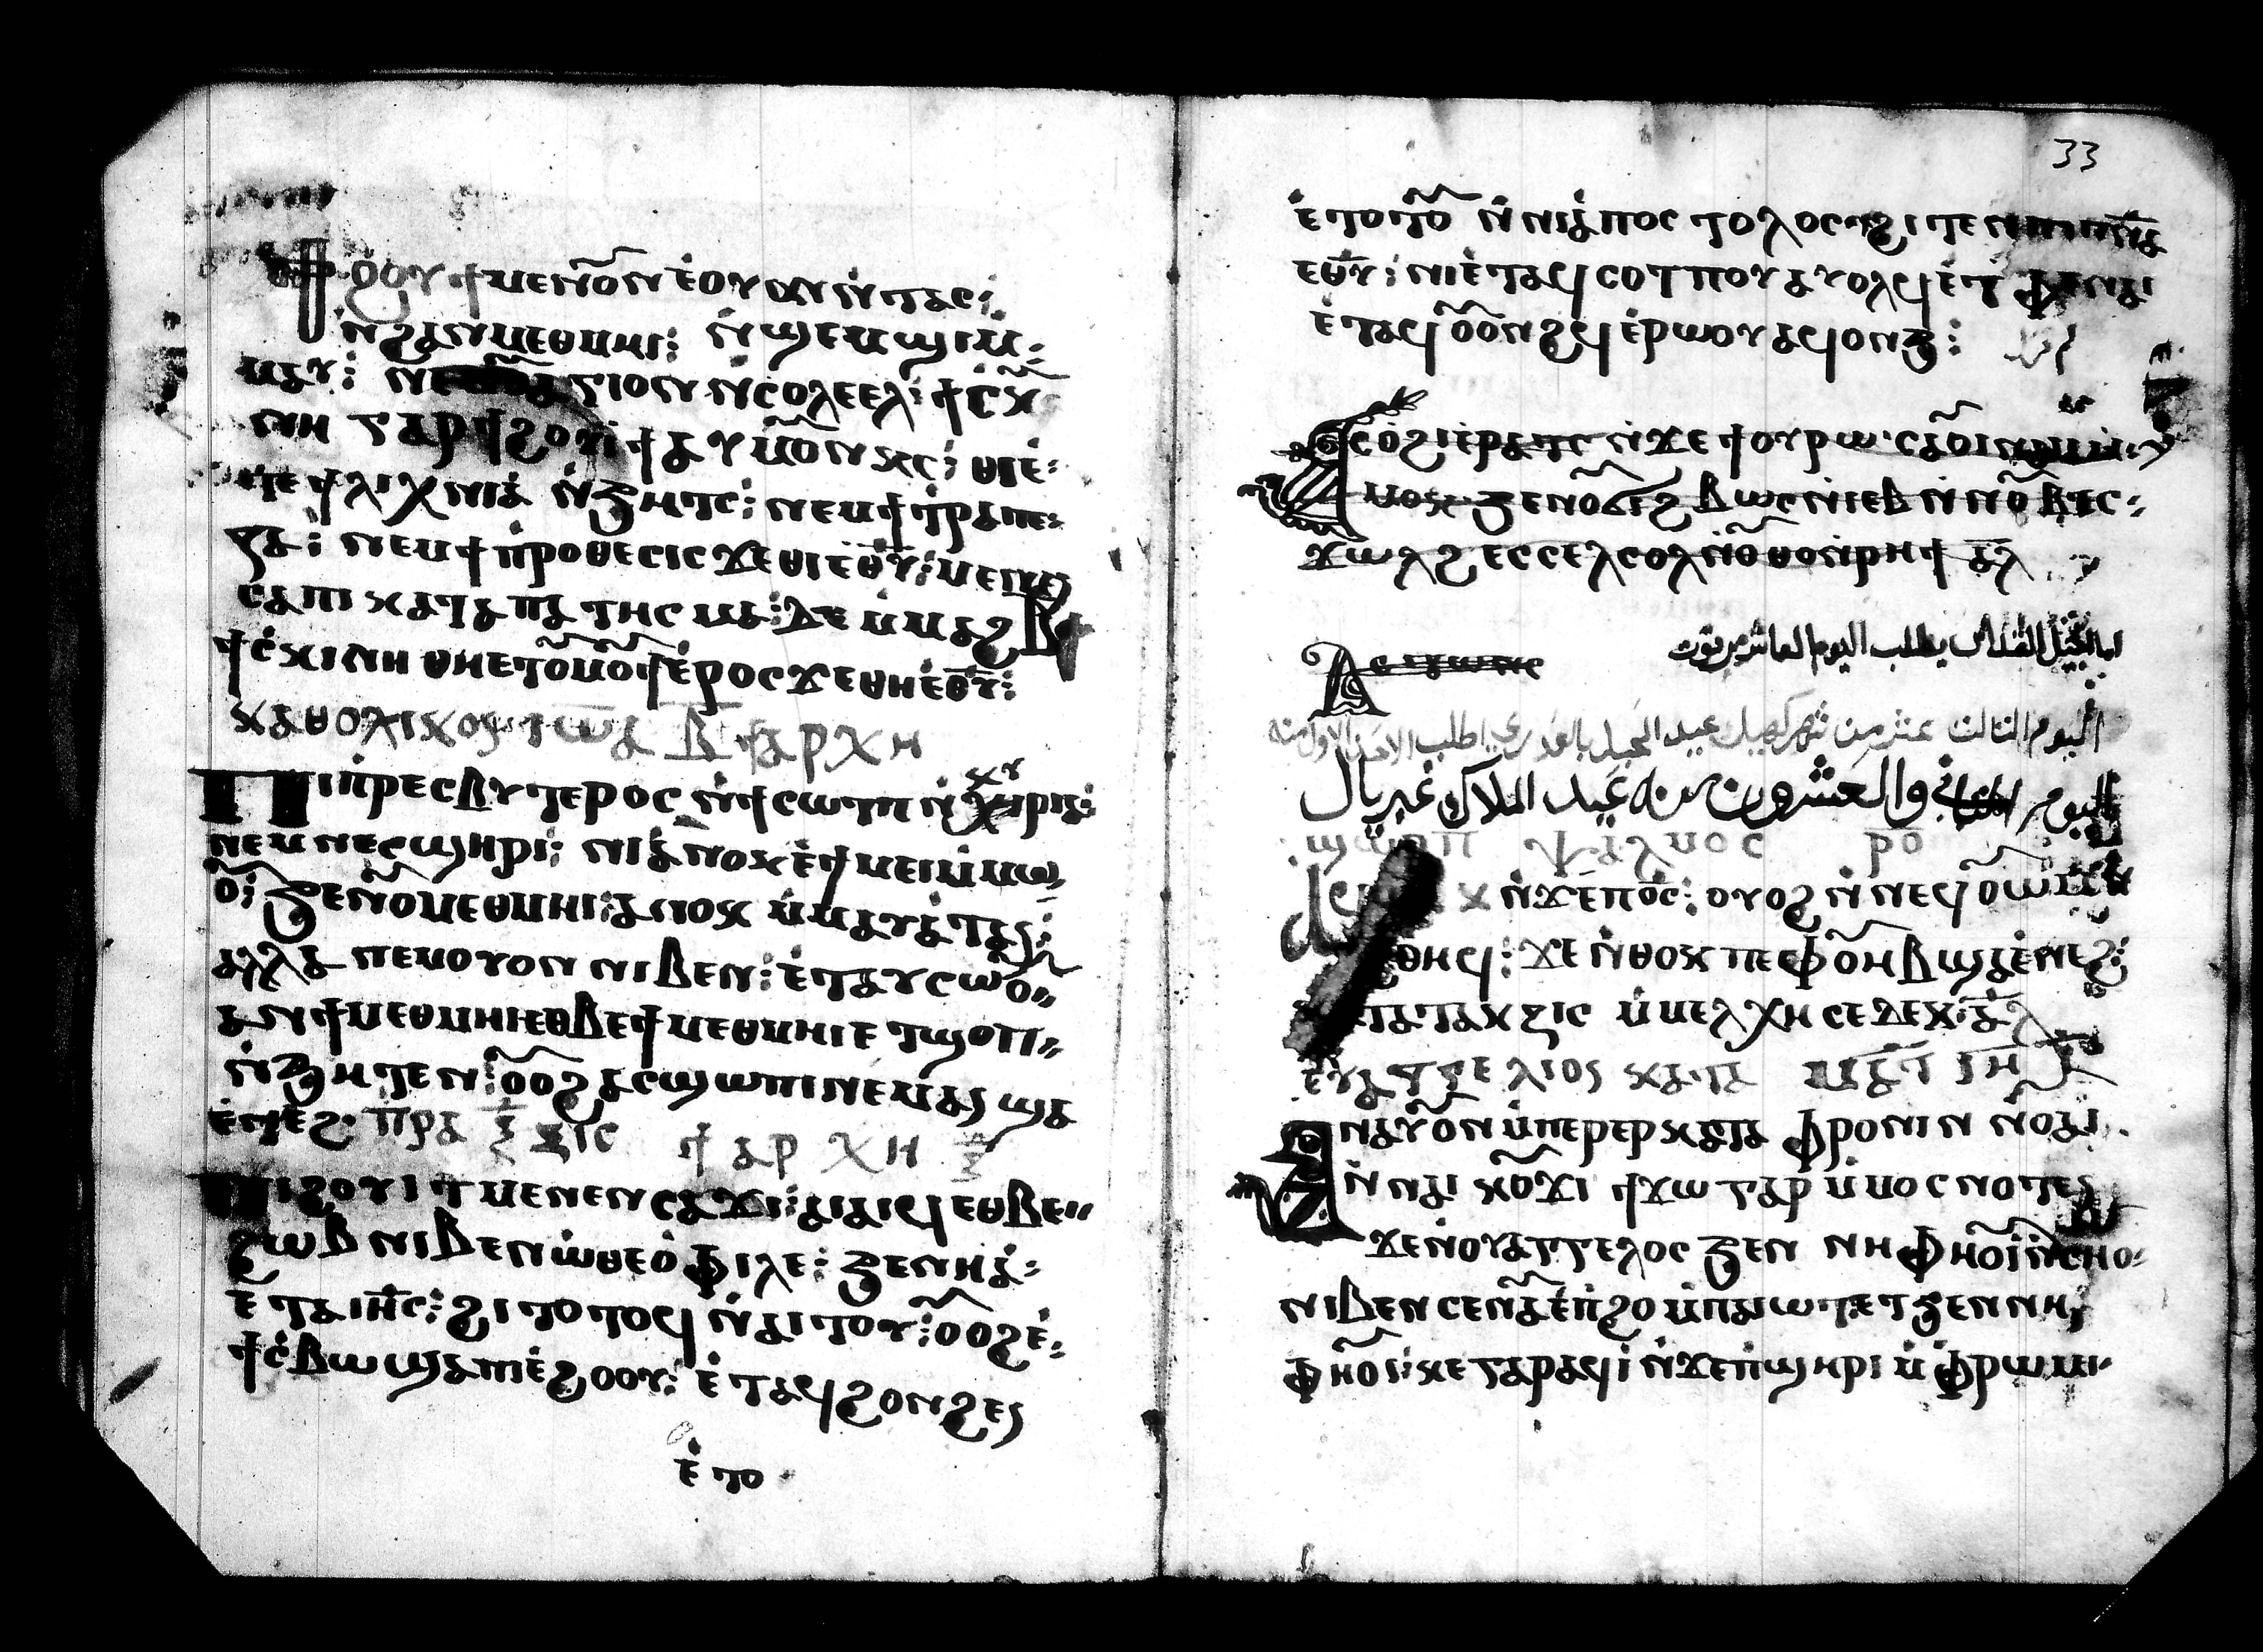 ϯϩⲟⲩⲓϯ ⲙⲉⲛⲟ̃ⲛ ⲉ̇ⲟⲩⲟⲛ ⲛ̇ⲧⲁⲥ⁝
ⲛ̇ϩⲁⲛⲙⲉⲑⲙⲏⲓ⁝ ⲛ̇ϣⲉⲙϣⲓⲙ̇⸗
ⲙⲁⲩ⁝
ⲛⲏ ⲅⲁⲣ ϯϩⲟⲩⲓϯ ⲁⲩⲙⲟ̃ⲛⲕⲥ⁝ ⲑⲓⲉ̇⸗
ⲧⲉ ϯⲗⲓⲭⲛⲓⲁ̇ ⲛ̇ϧⲏⲧⲥ⁝ ⲛⲉⲙϯⲧ̇ⲣⲁⲡⲉ⸗
ⲍⲁ⁝ ⲛⲉⲙϯⲡ̇ⲣⲟⲑⲉⲥⲓⲥ ϫⲉⲑⲓⲉ̇ⲑ̅ⲩ̅⁝ ⲙⲉⲛⲉⲛ
ⲥⲁⲡⲓ ⲕⲁⲧⲁⲡⲁ ⲧⲏⲥⲙⲁ⁝ ⲇⲉ ⲙ̇ⲙⲁϩⲃ̅ϯ
ϯⲥ̇ⲕⲓⲛⲏ ⲑⲏⲉⲧⲟ̃ⲙⲟ̃ϯ ⲉ̇ⲣⲟⲥ ϫⲉⲑⲏⲉ̇ⲑ̅ⲩ̅⁝
ⲕⲁⲑⲟⲗⲓⲕⲟⲥ ⲓ̅ⲱ̅ⲁ ⲃ̅ ϯⲁⲣⲭⲏ
ⲡⲓⲡ̇ⲣⲉⲥⲃⲩⲧⲉⲣⲟⲥ ⲛ̇ϯⲥⲱⲧⲡ ⲛ̇ⲕⲩⲣⲓⲁ⁝
ⲛⲉⲙ ⲛⲉⲥϣⲏⲣⲓ⁝ ⲛⲓⲁ̇ⲛⲟⲕ ⲉ̇ϯⲙⲉⲓⲙ̇ⲙⲱ
ⲟ̃⁝ ϧⲉⲛⲟ̃ⲙⲉⲑⲙⲏⲓ⁝ ⲁⲛⲟⲕ ⲙ̇ⲙⲁⲩⲁ̇ⲧⲁⲥ⁝
ⲁⲗⲗⲁ ⲛⲉⲙⲟⲩⲟⲛ ⲛⲓⲃⲉⲛ⁝ ⲉ̇ⲧⲁⲩⲥⲱⲟ̃⸗
ⲁⲛϯⲙⲉⲑⲙⲏⲓⲉⲑⲃⲉϯⲙⲉⲑⲙⲏⲓⲉ ⲧϣⲟⲡ⸗
ⲛ̇ϧⲏⲧⲉⲛ⁝ ⲟ̃ⲟϩ ⲁⲥϣⲱⲡⲓ ⲛⲉⲙⲁⲛ ϣⲁ
ⲉ̇ⲛⲉϩ⁝ ⲡⲣⲁⲝⲓⲥ ϯⲁⲣⲭⲏ
ⲡⲓϩⲟⲩⲓⲧ ⲙⲉⲛⲉⲛⲥⲁϫⲓ⁝ ⲁⲓⲁⲓϥ ⲉⲑⲃⲉ⸗
ϩⲱⲃ ⲛⲓⲃⲉⲛ ⲱ̇ⲑⲉⲟ̇ⲫⲓⲗⲉ⁝ ϧⲉⲛⲏⲁ̇⸗
ⲉ̇ⲧⲁⲓⲏ̅ⲥ̅⁝ ϩⲓⲧⲟⲧⲟϥ ⲛ̇ⲁⲓⲧⲟⲩ⁝ ⲟ̃ⲟϩⲉ̇⸗
ϯⲥ̇ⲃⲱ ϣⲁⲡⲓⲉ̇ϩⲟⲟⲩ⁝ ⲉ̇ⲧⲁϥϩⲟⲛϩⲉⲛ
ⲉ̇ⲧⲟ
33
ⲉ̇ⲧⲟⲧⲟ̃ ⲛ̇ⲛⲓⲁ̇ⲡⲟⲥ ⲧⲟⲗⲟⲥ ϩⲓⲧⲉⲛ ⲡⲓⲡ̅ⲛ̅ⲁ̅
ⲉⲑ̅ⲩ̅⁝ ⲛⲓⲉ̇ⲧⲁϥⲥⲟⲧⲡⲟⲩ ⲁⲩⲟⲗϥ ⲉ̇ⲧ ⲫⲉⲛⲁⲓ
ⲉ̇ⲧⲁϥⲟ̃ⲟⲛϩϥ ⲉ̇ⲣⲱⲟⲩ ⲁϥⲟⲛϧ⁝
ⲁⲥⲟ̇ϩⲓⲉ̇ⲣⲁⲧⲥ ⲛ̇ϫⲉϯⲟⲩⲣⲱ
ⲙⲟⲕ ϧⲉⲛⲟ̃ϩⲃⲱⲥ ⲛ̇ⲓⲉⲃ ⲛ̇ⲛⲟ̃ⲃ ⲉⲥ⸗
ϫⲱⲗϩ ⲉⲥⲥⲉⲗⲥⲟⲗ ⲛ̇ⲟ̃ⲑⲟⲛ̇ⲣⲏϯ ⲁ̅ⲗ̅
الانجيل القداس يطلب اليوم العاشر من توت
اليوم الثالث عشر من شهر كيهك عيد الجبل بالقدري اطلب الاحد الاول منه
اليوم الثاني والعشرون منه عيد الملاك غبريال
ⲯⲁⲗⲙⲟⲥ ⲣ̅ⲟ̅
ⲛ̇ϫⲉⲡⲟ̅ⲥ̅⁝ ⲟⲩⲟϩ ⲛ̇ⲛⲉϥⲟ̃ⲱⲙ
ⲑⲏϥ⁝ ϫⲉ ⲛ̇ⲑⲟⲕ ⲡⲉ ⲫⲟ̃ⲏⲃ ϣⲁⲉ̇ⲛⲉϩ⁝
ⲧⲁⲧⲁⲝⲓⲥ ⲙ̇ⲙⲉⲗⲭⲏⲥⲉⲇⲉⲕ⁝ ⲁ̅ⲗ̅
ⲉⲩⲁⲅⲅⲉⲗⲓⲟⲥ ⲕⲁⲧⲁ ⲙⲁⲧ ⲓ̅ⲏ̅
ⲁⲛⲁⲩⲟ̃ⲛ ⲙ̇ⲡⲉⲣⲉⲣ ⲕⲁⲧⲁ ⲫⲣⲟⲛⲓⲛ ⲛ̇ⲟ̃ⲁⲓ
ⲛ̇ⲛⲁⲓ ⲕⲟ̃ϫⲓ ϯϫⲱ ⲅⲁⲣ ⲙ̇ⲙⲟⲥ ⲛⲟⲧⲉⲛ
ϫⲉⲛ̇ⲟⲩⲁⲅⲅⲉⲗⲟⲥ ϧⲉⲛ ⲛⲏⲫⲏⲟ̃ⲓ ⲛ̇ⲥⲏⲟ⸗
ⲛⲓⲃⲉⲛ ⲥⲉⲛⲁⲩⲉ̇ⲡ̇ϩⲟ ⲙ̇ⲡⲁⲓⲱⲧ ⲉⲧϧⲉⲛ ⲛⲏ
ⲫⲏⲟ̃ⲓ⁝ ⲕⲉ ⲅⲁⲣ ⲁϥⲓ̇ ⲛ̇ϫⲉⲡ̇ϣⲏⲣⲓ ⲙ̇ⲫⲣⲱⲙⲓ